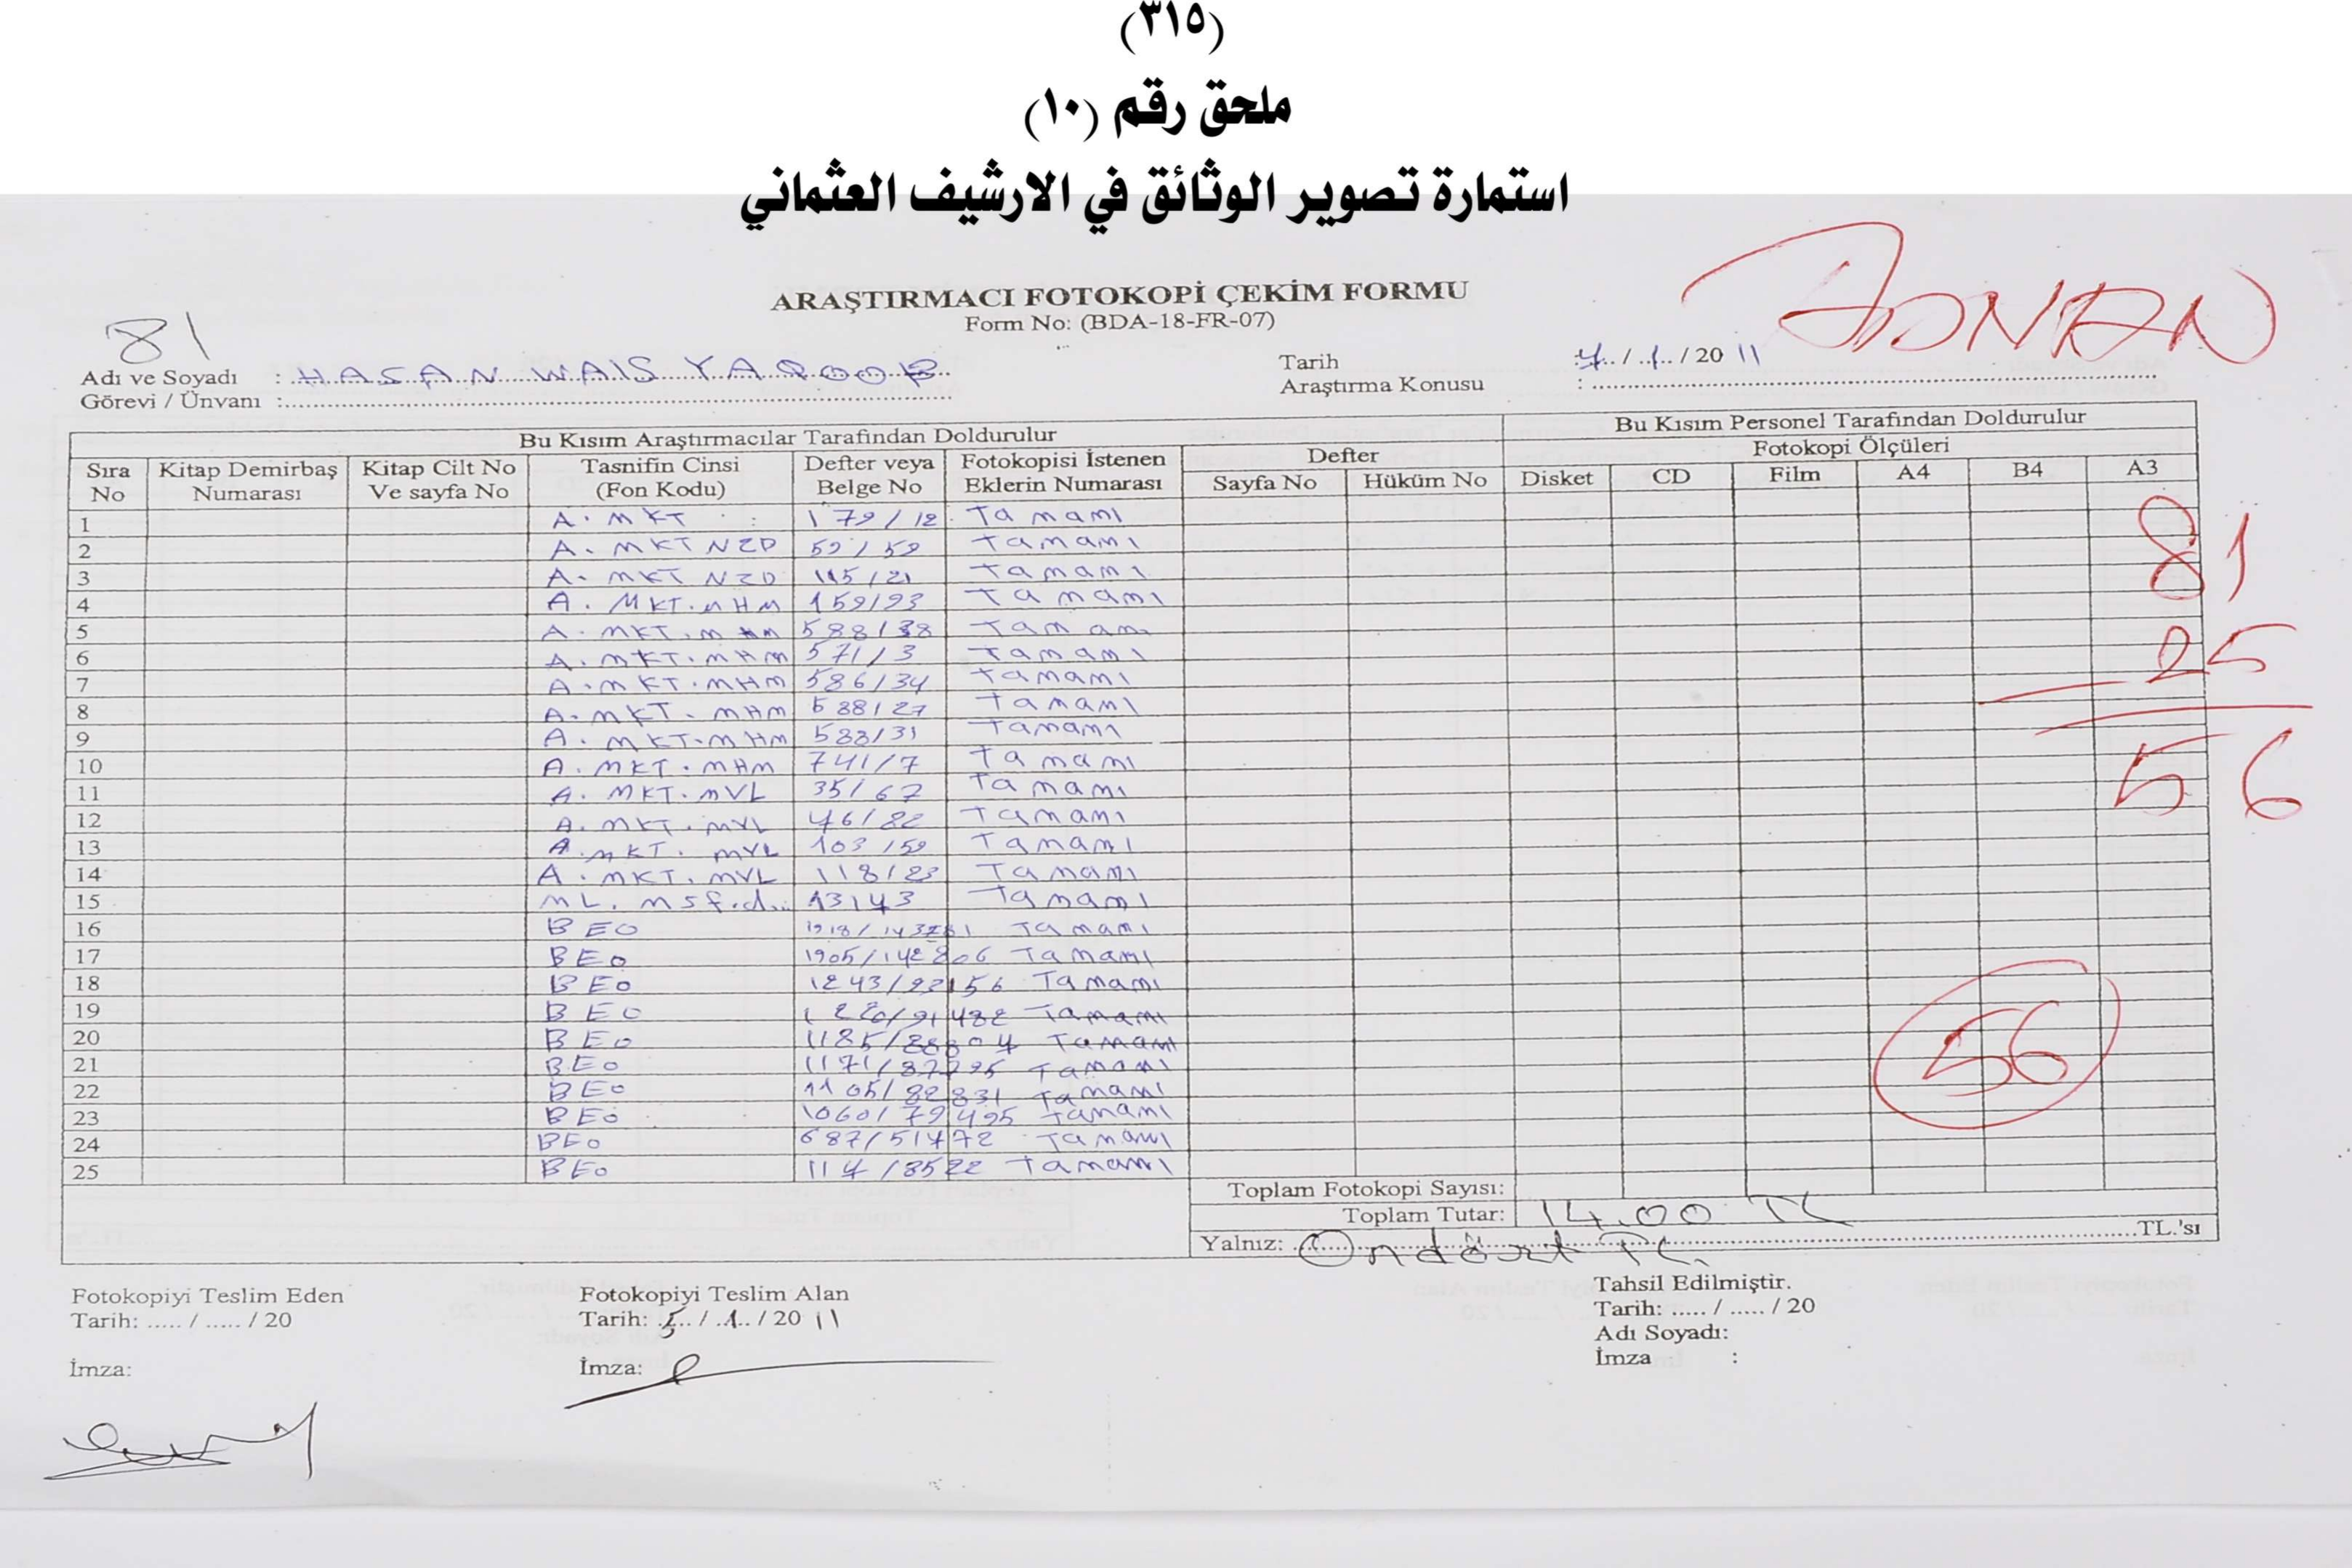 (٣١٥)
ملحق رقم (١٠)
استمارة تصوير الوثائق في الارشيف العثماني
ARAŞTIRMACI FOTOKOPİ ÇEKİM FORMU
Form No: (BDA-18-FR-07)
ADNAN
81
Adı ve Soyadı : HASAN WAIS YAQOOB
Tarih : 4 / 1 / 20 11
Görevi / Ünvanı :
Araştırma Konusu :
Bu Kısım Araştırmacılar Tarafından Doldurulur
Bu Kısım Personel Tarafından Doldurulur
Sıra No Kitap Demirbaş Numarası Kitap Cilt No Ve sayfa No Tasnifin Cinsi (Fon Kodu) Defter veya Belge No Fotokopisi İstenen Eklerin Numarası Defter Fotokopi Ölçüleri
Sayfa No Hüküm No Disket CD Film A4 B4 A3
1 A. MKT 179/12 Tamamı
2 A. MKT NZD 59/59 Tamamı
3 A. MKT NZD 115/21 Tamamı
4 A. MKT. MHM 159/93 Tamamı
5 A. MKT. MHM 588/38 Tamamı
6 A. MKT. MHM 571/3 Tamamı
7 A. MKT. MHM 586/34 Tamamı
8 A. MKT. MHM 588/27 Tamamı
9 A. MKT. MHM 588/31 Tamamı
10 A. MKT. MHM 741/7 Tamamı
11 A. MKT. MVL 35/67 Tamamı
12 A. MKT. MVL 46/82 Tamamı
13 A. MKT. MVL 103/59 Tamamı
14 A. MKT. MVL 118/23 Tamamı
15 ML. MSf.d.. 13143 Tamamı
16 BEO Tamamı
17 BEO 1905/142806 Tamamı
18 BEO 1243/93156 Tamamı
19 BEO 1220/91482 Tamamı
20 BEO 1185/88804 Tamamı
21 BEO Tamamı
22 BEO 1105/82831 Tamamı
23 BEO 1060/79495 Tamamı
24 BEO 687/51472 Tamamı
25 BEO 114/8522 Tamamı
81
25
56
56
Toplam Fotokopi Sayısı:
Toplam Tutar: 14.00 TL
Yalnız: Ondört TL. TL.'sı
Fotokopiyi Teslim Eden
Tarih: ..... / ..... / 20
İmza:
Fotokopiyi Teslim Alan
Tarih: 5 / 1 / 20 11
İmza:
Tahsil Edilmiştir.
Tarih: ..... / ..... / 20
Adı Soyadı:
İmza :